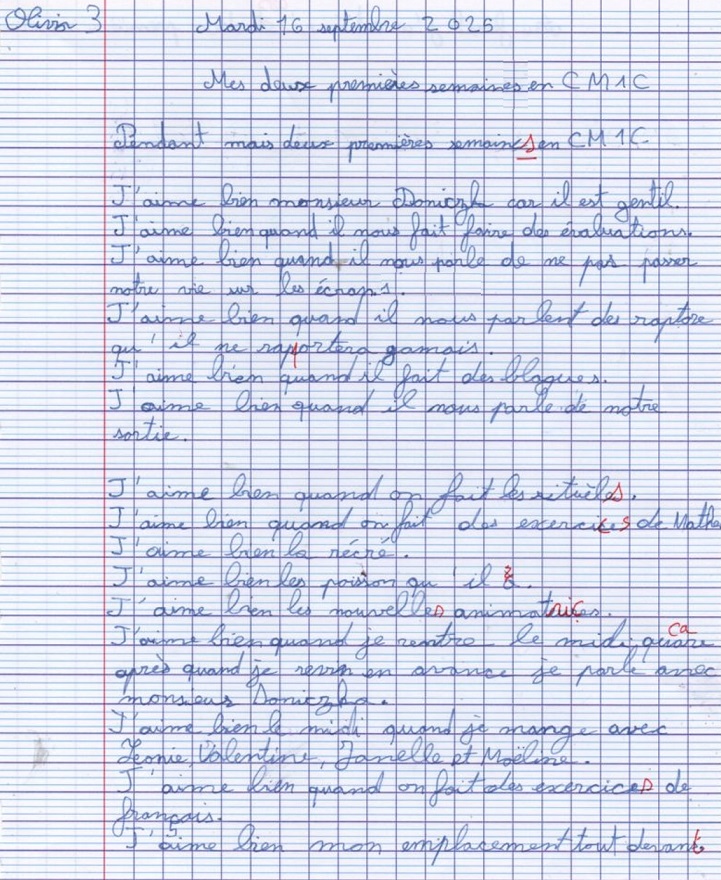 Olivin 3 Mardi 16 septembre 2025
Mes deux premières semaines en CM1C
Pendant mais deux premières semaines en CM1C
J'aime bien monsieur Doniczka car il est gentil.
J'aime bien quand il nous fait faire des évaluations.
J'aime bien quand il nous parle de ne pas passer
notre vie sur les écrans.
J'aime bien quand il nous parlent des raptore
qu'il ne raportera gamais.
J'aime bien quand il fait des blagues.
J'aime bien quand il nous parle de notre
sortie.
J'aime bien quand on fait les rituels.
J'aime bien quand on fait des exercices de Mathe
J'aime bien la récré.
J'aime bien les poision qu'il
J'aime bien les nouvelles animatrices.
J'aime bien quand je rentre le midi, ca
après quand je revin en avance je parle avec
monsieur Doniczka.
J'aime bien le midi quand je mange avec
Leonie, Valentine, Janelle et Maëline.
J'aime bien quand on fait des exercices de
français.
J'aime bien mon emplacement tout devant